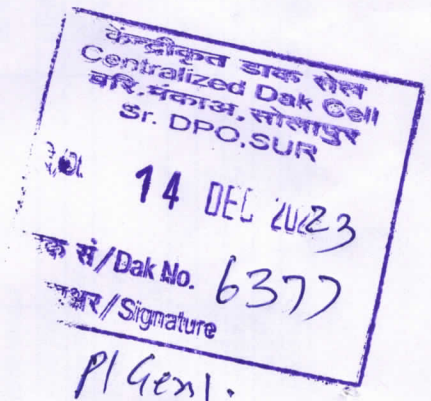 केन्द्रीकृत डाक सेल
Centralized Dak Cell
वरि.मंकाअ, सोलापुर
Sr. DPO, SUR
14 DEC 2023
डाक सं/Dak No. 6377
/Signature
P/Genl.